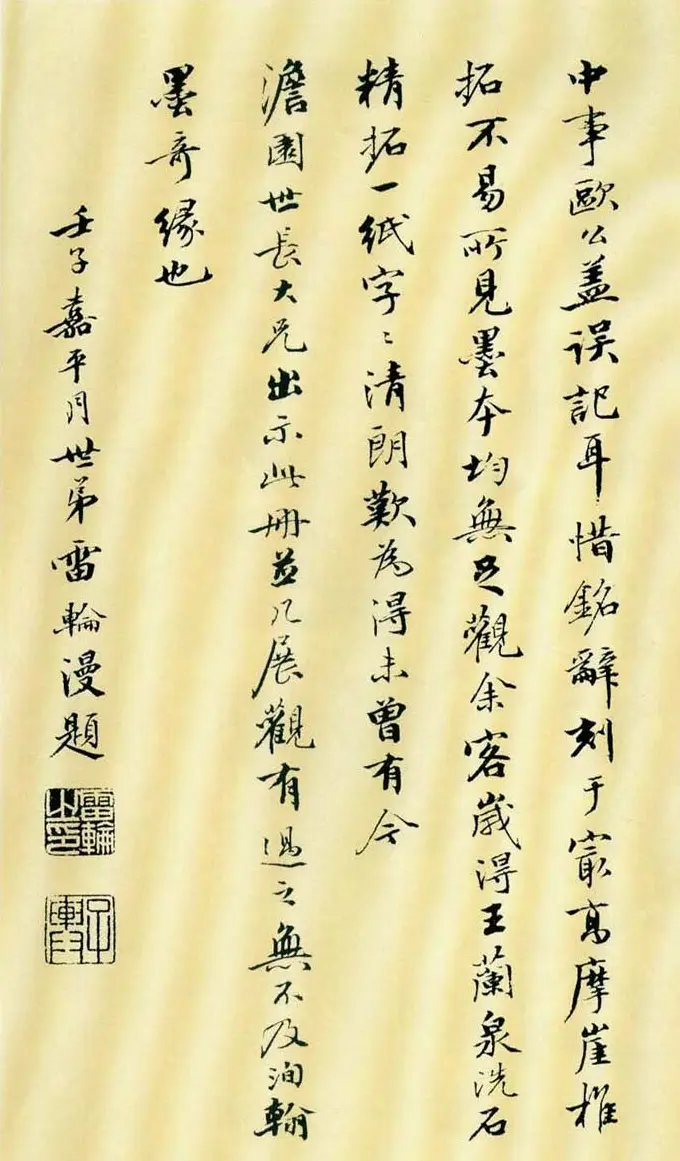 中事歐公盖误記耳惜銘辭刻于最高摩崖椎
拓不易所見墨本均無足觀余客歲得王蘭泉洗石
精拓一紙字〻清朗歎為得未曾有今
澹園世長大兄出示此冊並几展觀有過之無不及洵翰
墨奇緣也
壬子嘉平月世弟雷輪漫題
雷輪之印